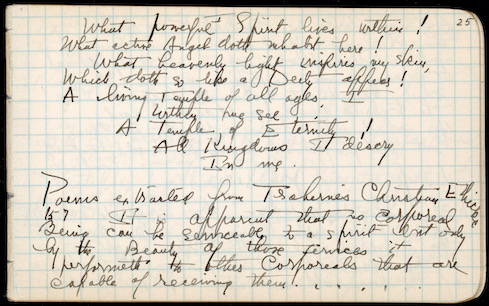 25
What powerful Spirit lives within!
What active Angel doth inhabit here!
What heavenly light inspires my skin,
Which doth so like a Deity appear!
A living Temple of all ages, I
Within me see
A Temple of Eternity!
All Kingdoms I descry
In me.
Poems extracted from Traherne's Christian Ethicks
It is apparent that no corporeal
Being can be serviceable to a spirit but only
by the Beauty of those services it
performeth to other Corporeals that are
capable of receiving them . . . . .